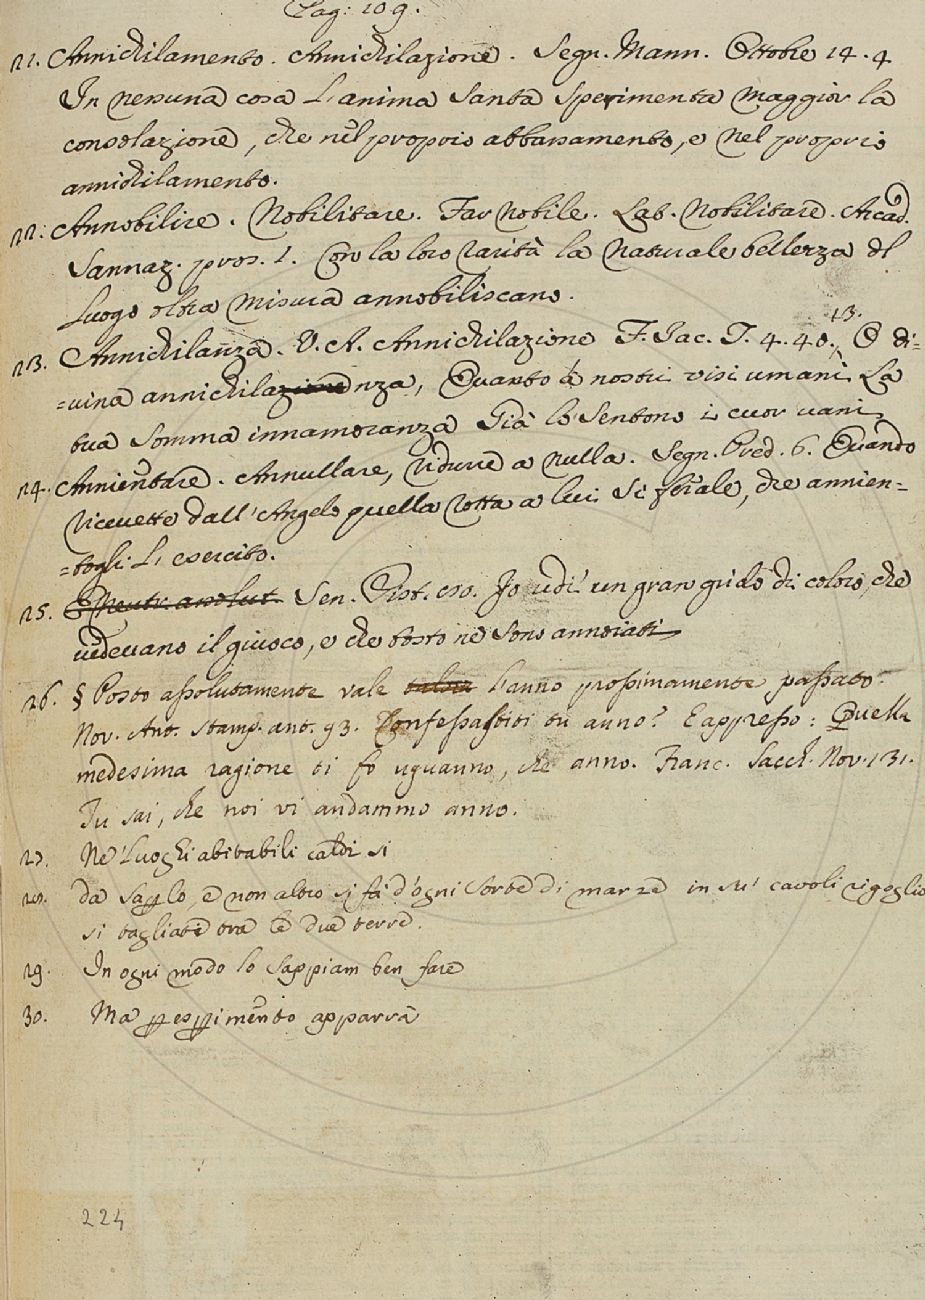 Pag: 109.
21. Annichilamento. Annichilazione. Segn. Mann. Ottobre 14. 4
In nessuna cosa L'anima Santa sperimenta maggior la
consolazione, che nel proprio abbassamento, e nel proprio
annichilamento.
22. Annobilire. Nobilitare. Far nobile. Lat. Nobilitare. Arcad.
Sannaz. pros. 1. Con la loro rarità la naturale bellezza del
Luogo oltra misura annobiliscano.
23. Annichilanza. V. A. Annichilazione F. Jac. T. 4. 40. 13. O di=
=vina annichilazionenza, Quanto a' nostri visi umani La
tua somma innamoranza Già lo sentono i cuor vani
24. Annientare. Annullare, ridurre a nulla. Segn. Pred. 6. Quando
ricevette dall'Angelo quella rotta a lui sì ferale, che annien=
=togli L'esercito.
25. Neutr. assolut. Sen. Pist. Io udi' un gran grido di coloro, che
vedevano il giuoco, e che tosto ne sono annoiati
26. § Posto assolutamente vale L'anno prossimamente passato.
Nov. Ant. stamp. ant. 93. Confessastiti tu anno? E appresso: Quella
medesima ragione ti fo uguanno, che anno. Franc. Sacch. Nov. 131.
Tu sai, che noi vi andammo anno.
27. Ne' Luoghi abitabili caldi si
28. da saperlo, e non altro si fa d'ogni sorte di marze in su' cavoli rigoglio
si tagliate tra le due terre.
29. In ogni modo lo sappiam ben fare
30. Ma per esperimento apparrà
224